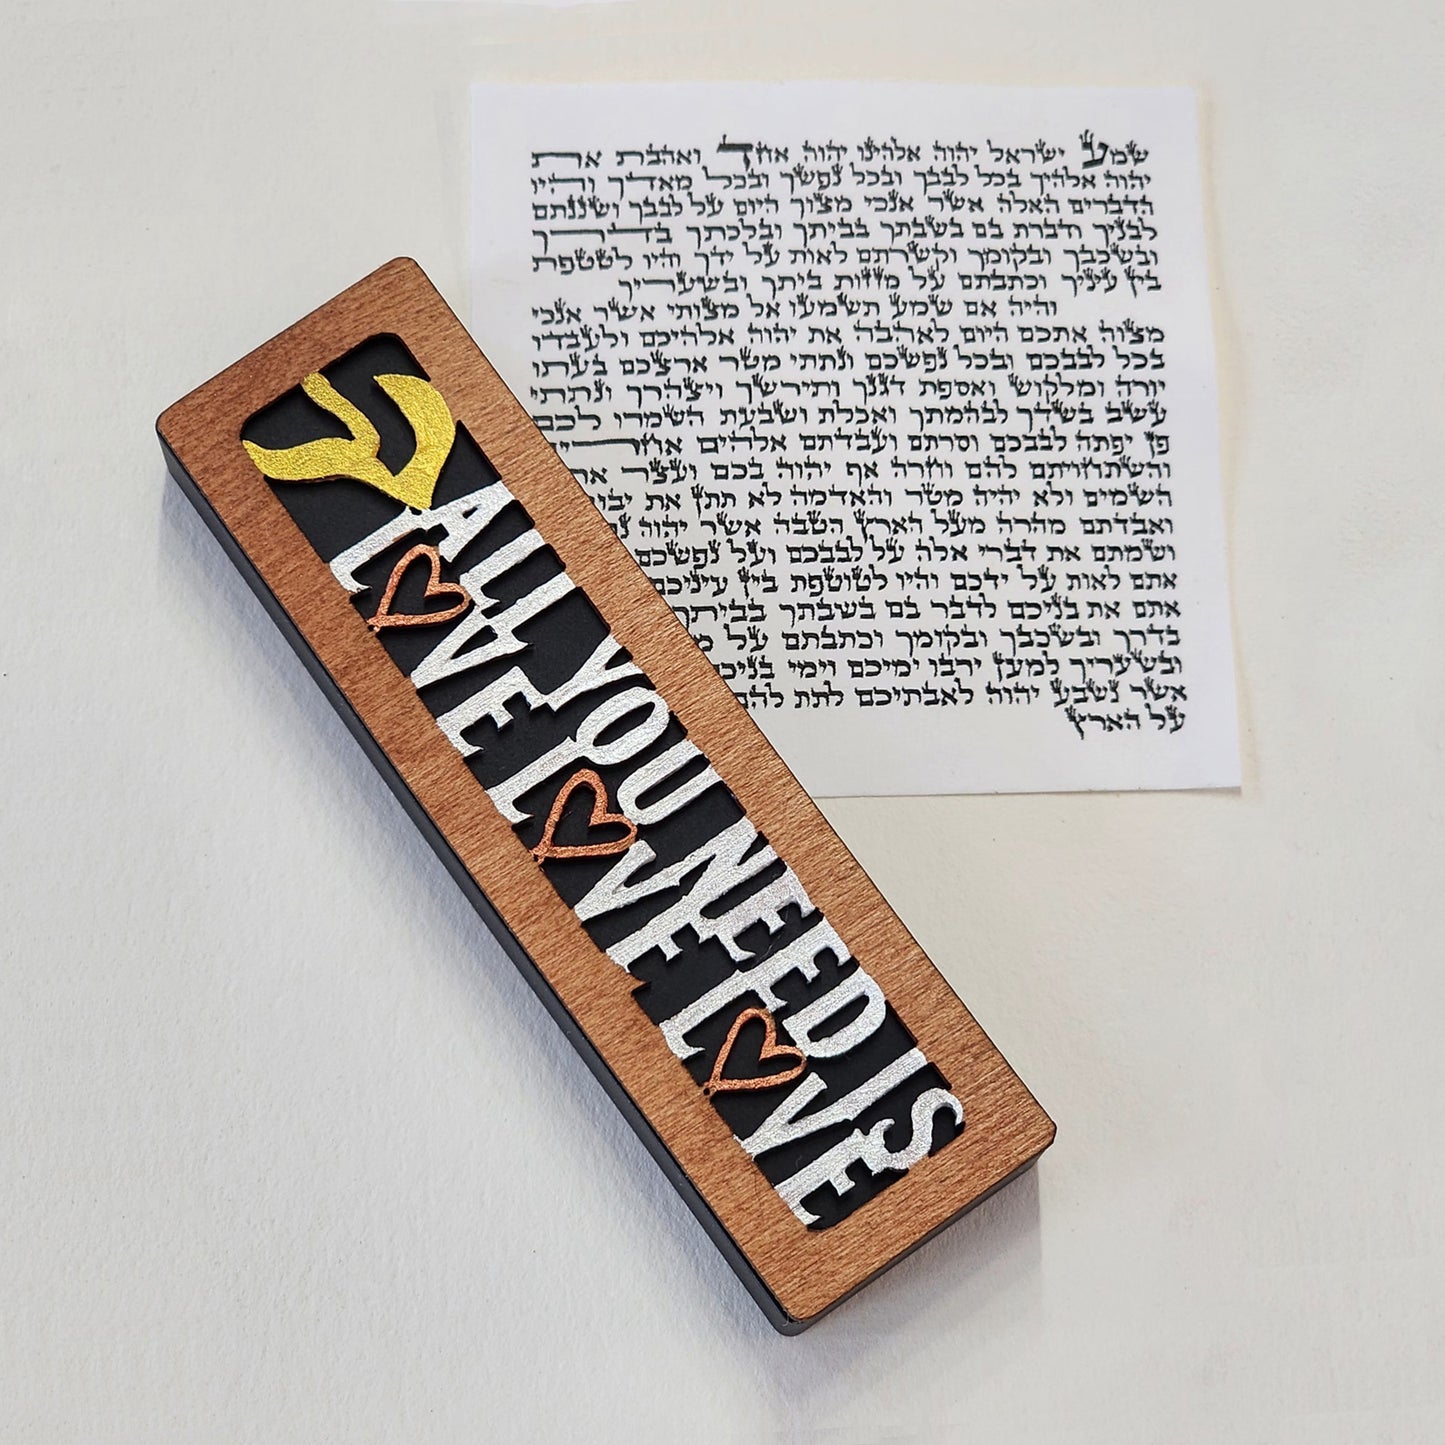 ש
ALL YOU NEED IS
L♡VE L♡VE L♡VE
שמע ישראל יהוה אלהינו יהוה אחד ואהבת את
יהוה אלהיך בכל לבבך ובכל נפשך ובכל מאדך והיו
הדברים האלה אשר אנכי מצוך היום על לבבך ושננתם
לבניך ודברת בם בשבתך בביתך ובלכתך בדרך
ובשכבך ובקומך וקשרתם לאות על ידך והיו לטטפת
בין עיניך וכתבתם על מזזות ביתך ובשעריך
והיה אם שמע תשמעו אל מצותי אשר אנכי
מצוה אתכם היום לאהבה את יהוה אלהיכם ולעבדו
בכל לבבכם ובכל נפשכם ונתתי מטר ארצכם בעתו
יורה ומלקוש ואספת דגנך ותירשך ויצהרך ונתתי
עשב בשדך לבהמתך ואכלת ושבעת השמרו לכם
פן יפתה לבבכם וסרתם ועבדתם אלהים
והשתחויתם להם וחרה אף יהוה בכם ועצר
השמים ולא יהיה מטר והאדמה לא תתן את
ואבדתם מהרה מעל הארץ הטבה אשר יהוה
ושמתם את דברי אלה על לבבכם ועל נפשכם
אתם לאות על ידכם והיו לטוטפת בין עיניכם
אתם את בניכם לדבר בם בשבתך בביתך
בדרך ובשכבך ובקומך וכתבתם על
ובשעריך למען ירבו ימיכם וימי
אשר נשבע יהוה לאבתיכם לתת להם
על הארץ